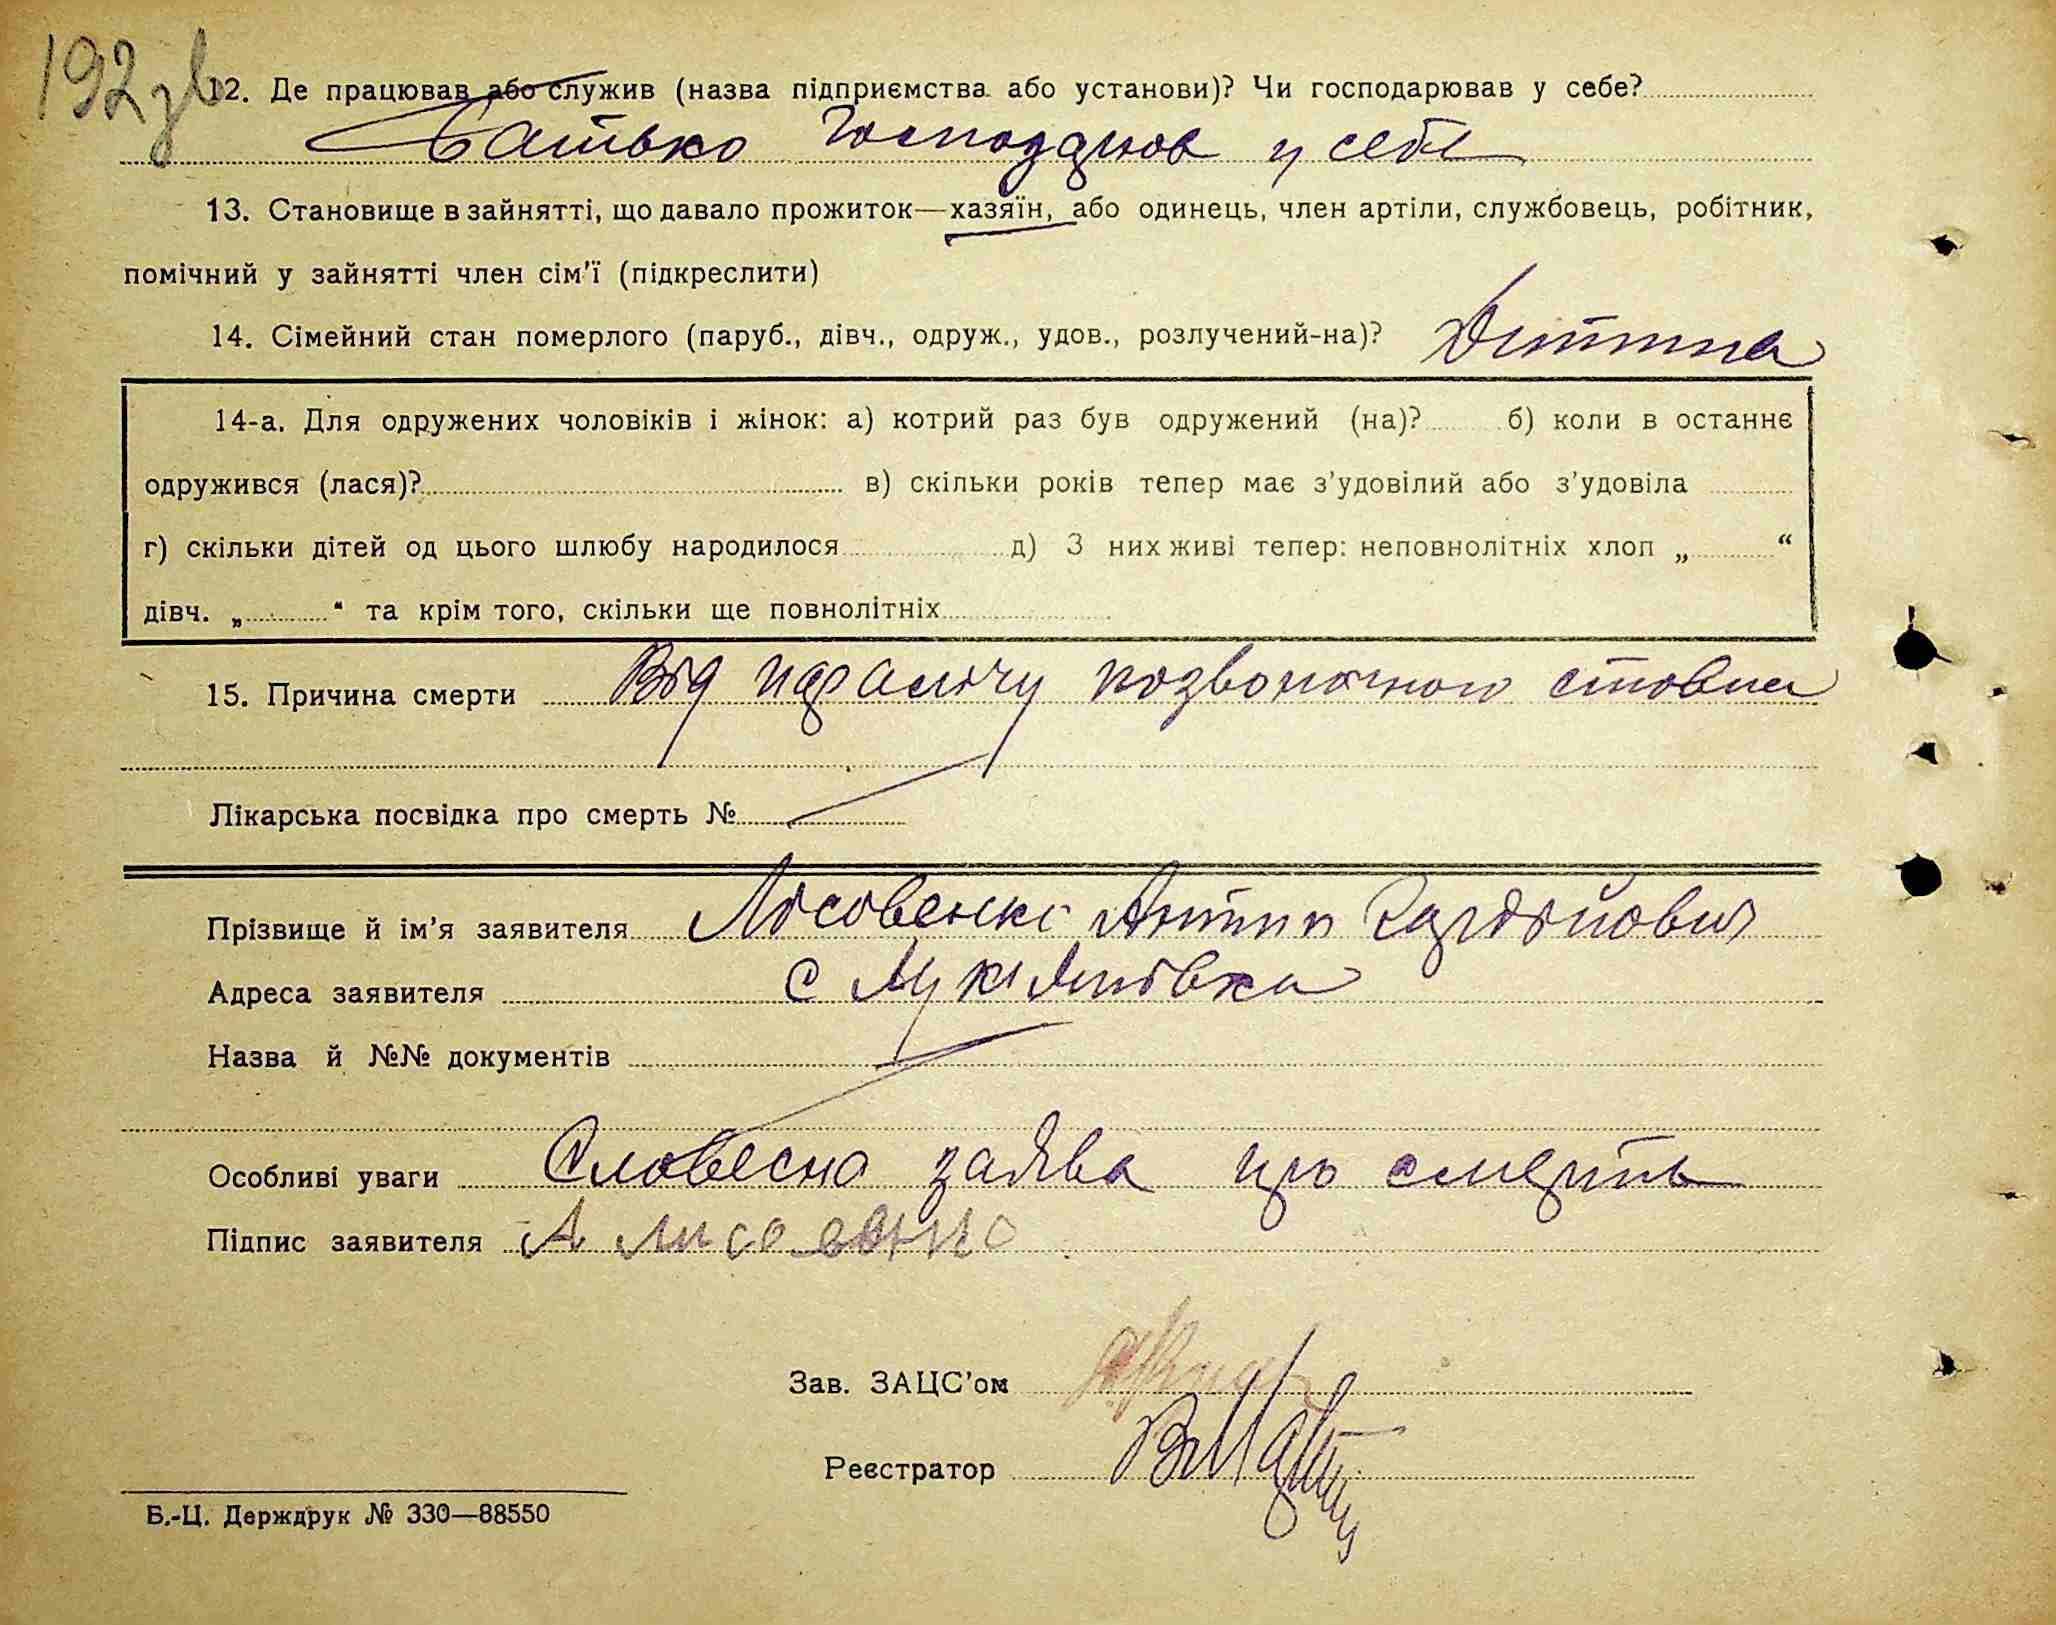 192 зв
12. Де працював або служив (назва підприємства або установи)? Чи господарював у себе?
Батько господарював у себе
13. Становище в зайнятті, що давало прожиток—хазяїн, або одинець, член артіли, службовець, робітник,
помічний у зайнятті член сім'ї (підкреслити)
14. Сімейний стан померлого (паруб., дівч., одруж., удов., розлучений-на)? Дитина
14-а. Для одружених чоловіків і жінок: а) котрий раз був одружений (на)? б) коли в останнє
одружився (лася)? в) скільки років тепер має з'удовілий або з'удовіла
г) скільки дітей од цього шлюбу народилося д) З них живі тепер: неповнолітніх хлоп „ “
дівч. „ “ та крім того, скільки ще повнолітніх
15. Причина смерти Від паралічу позвоночного стовпа
Лікарська посвідка про смерть №
Прізвище й ім'я заявителя Лісовенко Антип
Адреса заявителя с Лукіянівка
Назва й №№ документів
Особливі уваги Словесна заява про смерть
Підпис заявителя А Лисовенко
Зав. ЗАЦС'ом
Реєстратор
Б.-Ц. Держдрук № 330—88550